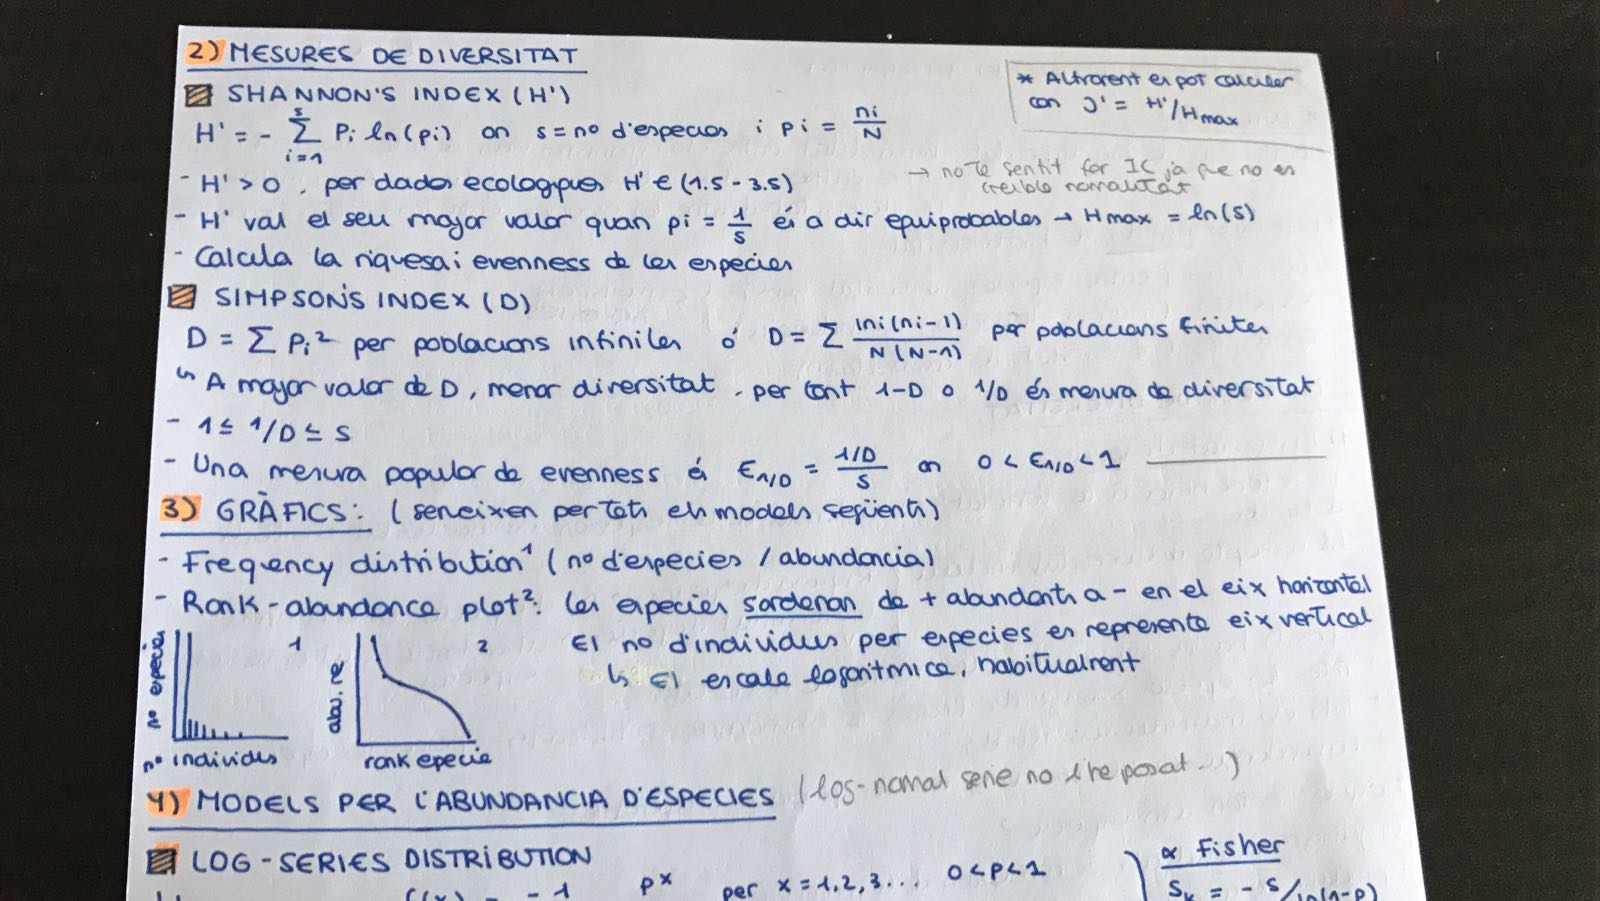 2) MESURES DE DIVERSITAT
* Altrament es pot calcular
con J' = H'/Hmax
SHANNON'S INDEX (H')
H' = - Σ Pi ln(pi) on s = no d'especies i pi = ni/N
s
i=1
→ no te sentit fer IC ja que no es
creible normalitat
- H' > 0, per dades ecologiques H' ∈ (1.5 - 3.5)
- H' val el seu major valor quan pi = 1/s és a dir equiprobables → Hmax = ln(s)
- Calcula la riquesa i evenness de les especies
SIMPSON'S INDEX (D)
D = Σ Pi² per poblacions infinites ó D = Σ ni(ni-1)/N(N-1) per poblacions finites
↳ A major valor de D, menor diversitat, per tant 1-D o 1/D és mesura de diversitat
- 1 ≤ 1/D ≤ S
- Una mesura popular de evenness és E1/D = 1/D/S on 0 < E1/D < 1
3) GRÀFICS: (serveixen per tots els models següents)
- Freqency distribution¹ (no d'especies / abundancia)
- Rank-abundance plot²: les especies s'ordenan de + abundants a - en el eix horizontal
El no d'individus per especies es representa eix vertical
↳ El escala logaritmica, habitualment
no especies
1
nº individus
abu. re
2
rank especie
4) MODELS PER L'ABUNDANCIA D'ESPECIES (log-normal serie no l'he posat...)
LOG-SERIES DISTRIBUTION
α Fisher
p^x per x = 1,2,3... 0<p<1
- 1
= - S/ln(1-p)